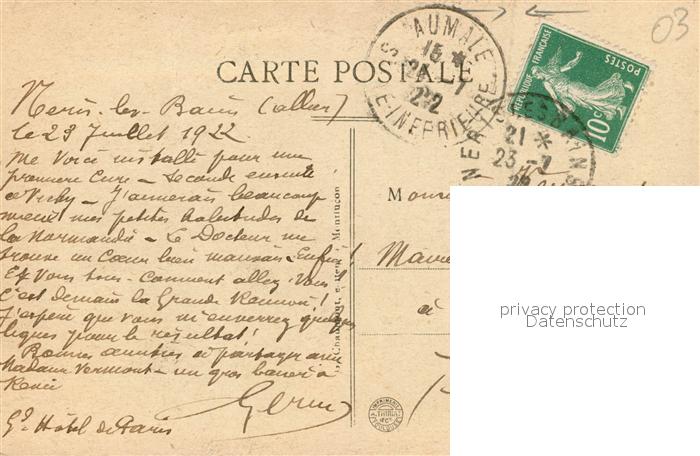 03
CARTE POSTALE
AUMALE
15 *
24 -7
22
SEINE INFPRIEURE
RÉPUBLIQUE FRANÇAISE
POSTES
10c
21 *
23 -7
22
Neris-les-Bains (allier)
le 23 Juillet 1922
Me voici installé pour une
première Cure - Seconde ensuite
à Vichy - J'aimerais beaucoup
mieux mes petites habitudes de
la Normandie - Le Docteur me
trouve un Cœur bien mauvais - Enfin!
Et Vous tous - Comment allez-Vous!
C'est demain la Grande Réunion!
J'espère que vous m'enverrez quelques
lignes pour le résultat!
Bonnes amitiés à partager avec
Madame Vermont - un gros baiser à
René
Gd Hôtel de Paris
Montluçon
Mons
Maire
à
privacy protection
Datenschutz